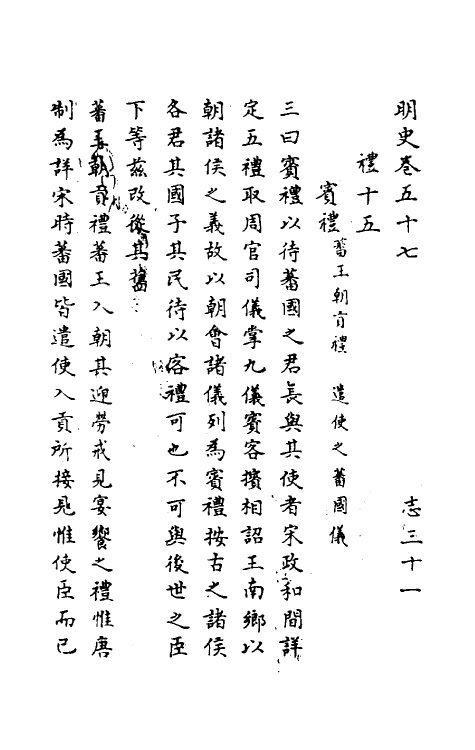 明史卷五十七　志三十一
禮十五
賓禮 蕃王朝貢禮　遣使之蕃國儀
三曰賓禮以待蕃國之君長與其使者宋政和間詳
定五禮取周官司儀掌九儀賓客擯相詔王南鄉以
朝諸侯之義故以朝會諸儀列為賓禮按古之諸侯
各君其國子其民待以客禮可也不可與後世之臣
下等茲改從其舊
蕃王朝貢禮蕃王入朝其迎勞戒見宴饗之禮惟唐
制為詳宋時蕃國皆遣使入貢所接見惟使臣而已